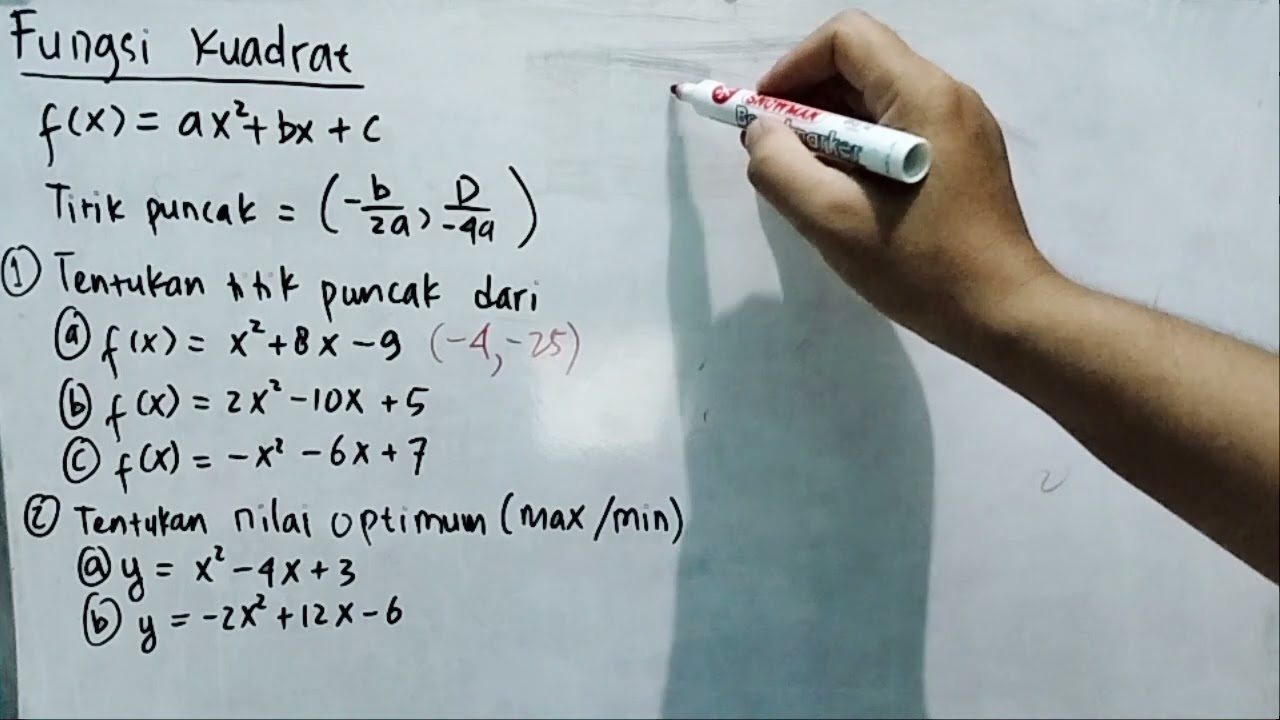 Fungsi Kuadrat
f(x) = ax²+bx+c
Titik puncak = (-b/2a, D/-4a)
① Tentukan titik puncak dari
ⓐ f(x) = x²+8x-9 (-4,-25)
ⓑ f(x) = 2x²-10x+5
ⓒ f(x) = -x²-6x+7
② Tentukan nilai optimum (max/min)
ⓐ y = x²-4x+3
ⓑ y = -2x²+12x-6
SNOWMAN
Boardmarker